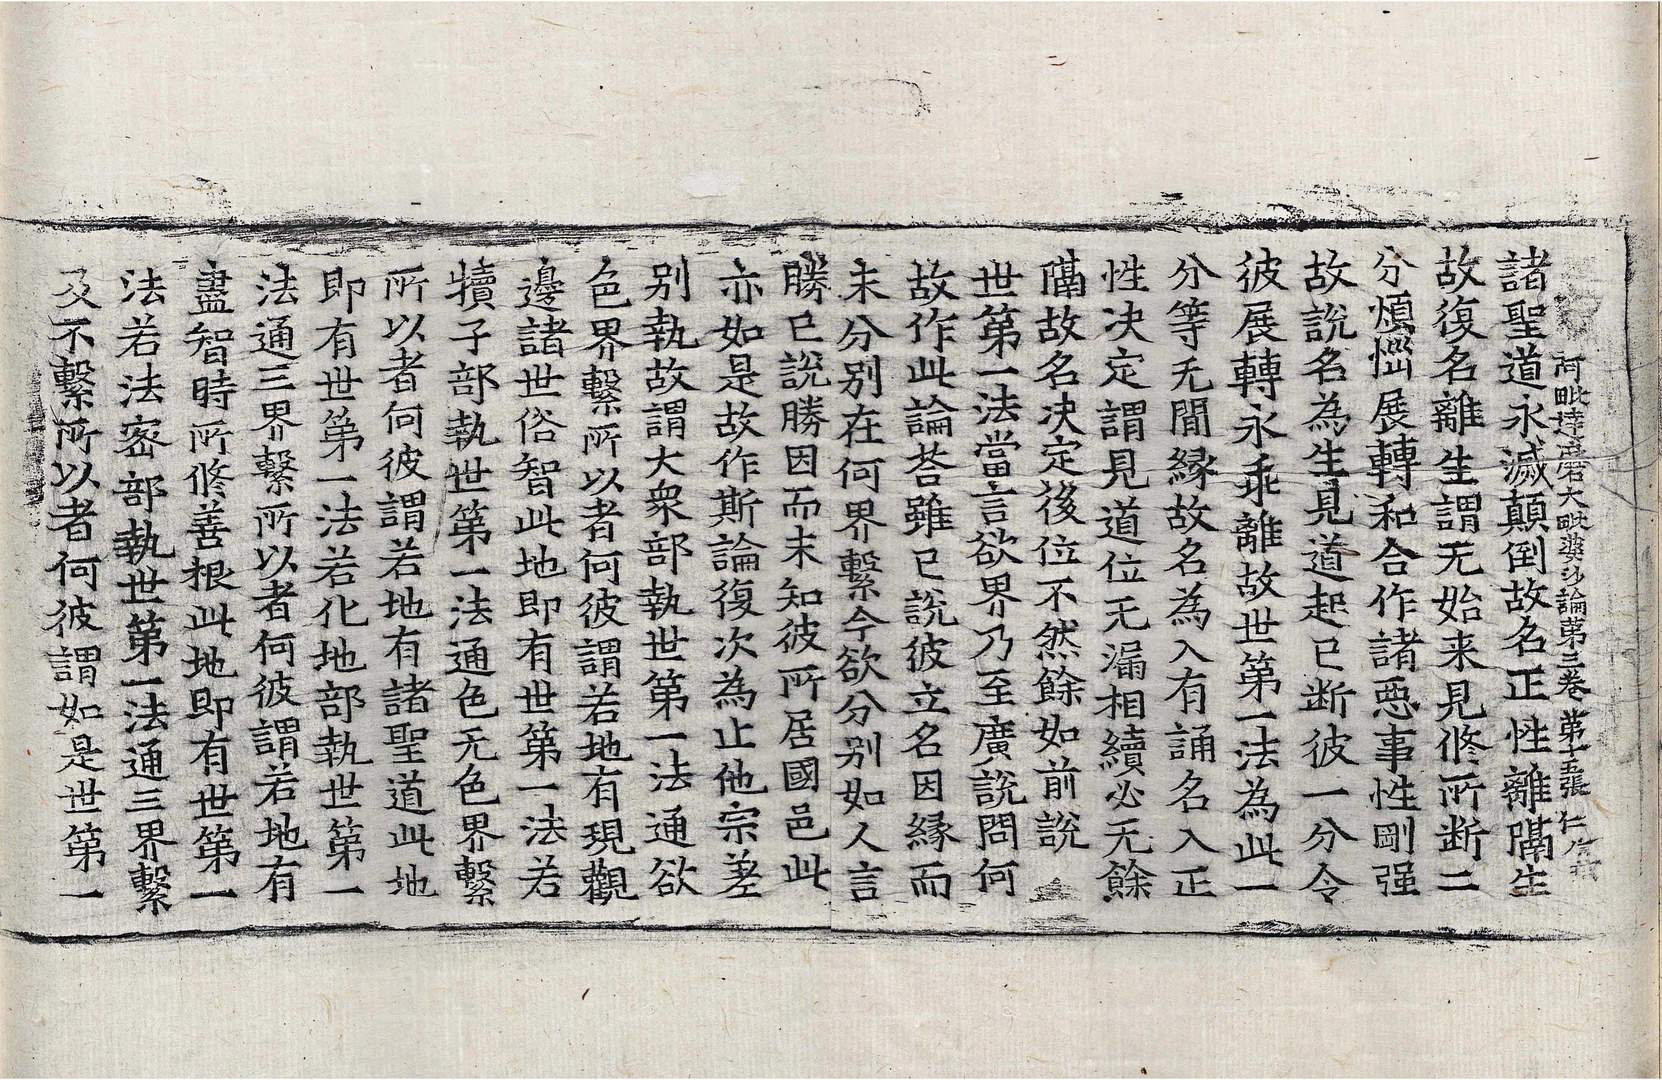 阿毗達磨大毗婆沙論第三卷 第十五張 仁
諸聖道永滅顛倒故名正性離隔生
故復名離生謂无始来見修所断二
分煩惱展轉和合作諸惡事性剛强
故說名為生見道起已断彼一分令
彼展轉永乖離故世第一法為此一
分等无間縁故名為入有誦名入正
性决定謂見道位无漏相續必无餘
隔故名决定後位不然餘如前說
世第一法當言欲界乃至廣說問何
故作此論荅雖已說彼立名因縁而
未分别在何界繫今欲分别如人言
勝已說勝因而未知彼所居國邑此
亦如是故作斯論復次為止他宗差
别執故謂大衆部執世第一法通欲
色界繫所以者何彼謂若地有現觀
邊諸世俗智此地即有世第一法若
犢子部執世第一法通色无色界繫
所以者何彼謂若地有諸聖道此地
即有世第一法若化地部執世第一
法通三界繫所以者何彼謂若地有
盡智時所修善根此地即有世第一
法若法密部執世第一法通三界繫
及不繫所以者何彼謂如是世第一